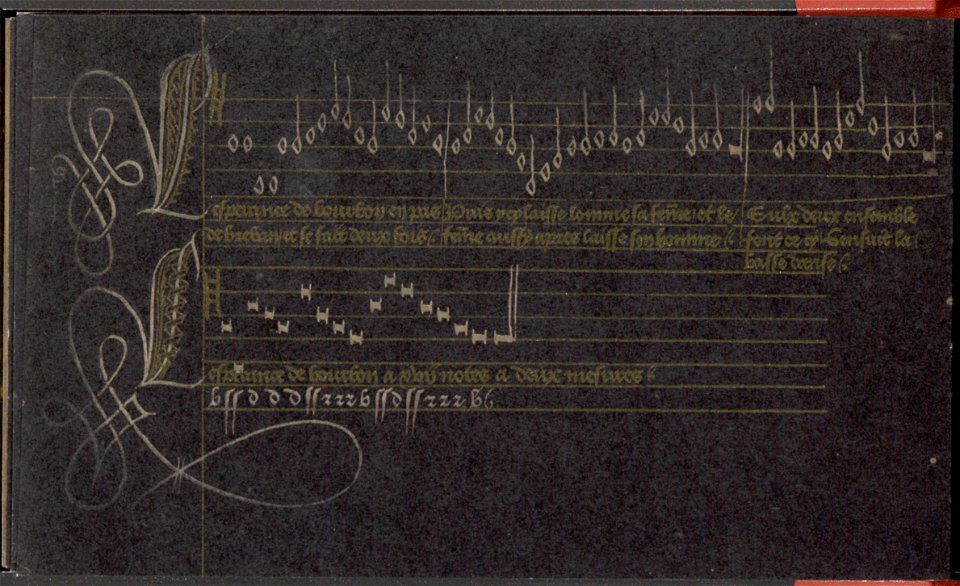 Lesperance de bourbon en pas
de breban et se fait deux fois.
Puis ycy laisse lomme sa feme et le
feme aussy apres laisse son homme.
Eulx deux ensemble
font ce cy. Sensuit la
basse danse.
Lesperance de bourbon a notes a deux mesures
b ss d d d ss rrr b ss d ss rrr b